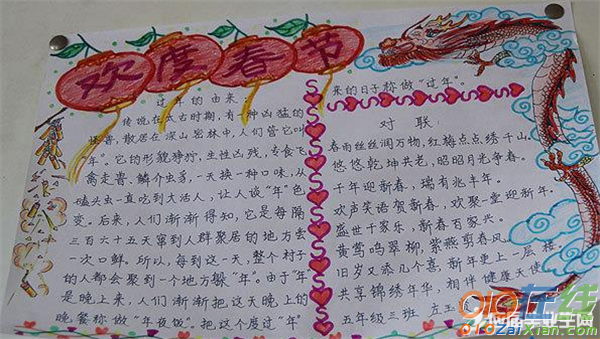 欢度春节
过年的由来:
传说在太古时期,有一种凶猛的
怪兽,散居在深山密林中,人们管它叫
“年”。它的形貌狰狞,生性凶残,专食飞
禽走兽、鳞介虫豸,一天换一种口味,从
磕头虫一直吃到大活人,让人谈“年”色
变。后来,人们渐渐得知,它是每隔
三百六十五天窜到人群聚居的地方尝
一次口鲜。所以,每到这一天,整个村子
的人都会聚到一个地方躲“年”。由于“年”
是晚上来,人们渐渐把这天晚上的
晚餐称做“年夜饭”。把这个度过“年”
来的日子称做“过年”。
对联
春雨丝丝润万物,红梅点点绣千山。
悠悠乾坤共老,昭昭日月争春。
千年迎新春,瑞有兆丰年。
欢声笑语贺新春,欢聚一堂迎新年。
盛世千家乐,新春百家兴。
黄莺鸣翠柳,紫燕剪春风。
旧岁又添几个喜,新年更上一层楼。
共享锦绣年华,相伴健康天使
五年级三班
910在线
910zaixian.com